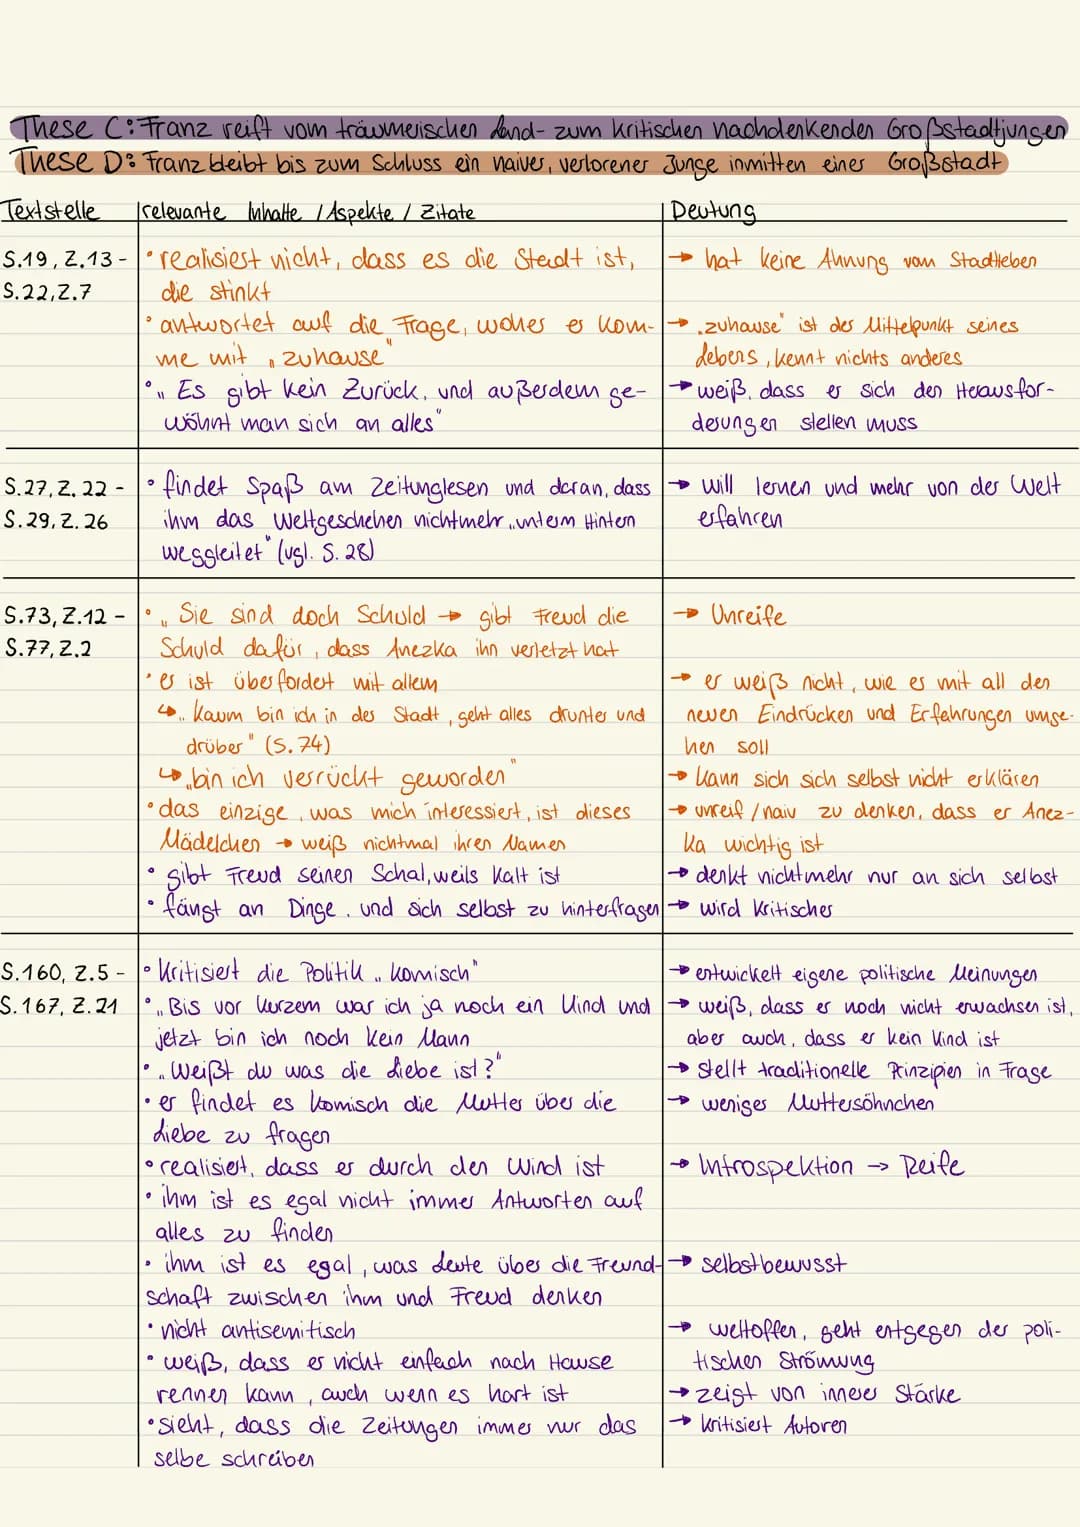 These C: Franz reift vom träumerischen Land- zum kritischen nachdenkenden Großstadtjungen
These D: Franz bleibt bis zum Schluss ein naiver, verlorener Junge inmitten einer Großstadt
Textstelle | relevante Inhalte / Aspekte / Zitate | Deutung
S.19, Z.13 - • realisiert nicht, dass es die Stadt ist, → hat keine Ahnung vom Stadtleben
S.22, Z.7 die stinkt
• antwortet auf die Frage, woher er kom- → „zuhause" ist der Mittelpunkt seines
me mit „zuhause" Lebens, kennt nichts anderes
• „Es gibt kein Zurück, und außerdem ge- → weiß, dass er sich den Herausfor-
wöhnt man sich an alles" derungen stellen muss
S.27, Z.22 - • findet Spaß am Zeitunglesen und daran, dass → will lernen und mehr von der Welt
S.29, Z.26 ihm das Weltgeschehen nichtmehr „unterm Hintern erfahren
weggleitet" (vgl. S. 28)
S.73, Z.12 - • „Sie sind doch Schuld → gibt Freud die → Unreife
S.77, Z.2 Schuld dafür, dass Anezka ihn verletzt hat
• er ist überfordert mit allem → er weiß nicht, wie es mit all den
↳ „Kaum bin ich in der Stadt, geht alles drunter und neuen Eindrücken und Erfahrungen umge-
drüber" (S.74) hen soll
↳ „bin ich verrückt geworden" → kann sich sich selbst nicht erklären
• das einzige, was mich interessiert, ist dieses → unreif / naiv zu denken, dass er Anez-
Mädelchen → weiß nichtmal ihren Namen ka wichtig ist
• gibt Freud seinen Schal, weils kalt ist → denkt nichtmehr nur an sich selbst
• fängt an Dinge, und sich selbst zu hinterfragen → wird kritischer
S.160, Z.5 - • kritisiert die Politik „komisch" → entwickelt eigene politische Meinungen
S.167, Z.21 • „Bis vor kurzem war ich ja noch ein Kind und → weiß, dass er noch nicht erwachsen ist,
jetzt bin ich noch kein Mann aber auch, dass er kein Kind ist
• „Weißt du was die Liebe ist?" → stellt traditionelle Prinzipien in Frage
• er findet es komisch die Mutter über die → weniger Muttersöhnchen
Liebe zu fragen
• realisiert, dass er durch den Wind ist → Introspektion → Reife
• ihm ist es egal nicht immer Antworten auf
alles zu finden
• ihm ist es egal, was Leute über die Freund- → selbstbewusst
schaft zwischen ihm und Freud denken
• nicht antisemitisch → weltoffen, geht entgegen der poli-
• weiß, dass er nicht einfach nach Hause tischen Strömung
rennen kann, auch wenn es hart ist → zeigt von innerer Stärke
• sieht, dass die Zeitungen immer nur das → kritisiert Autoren
selbe schreiben